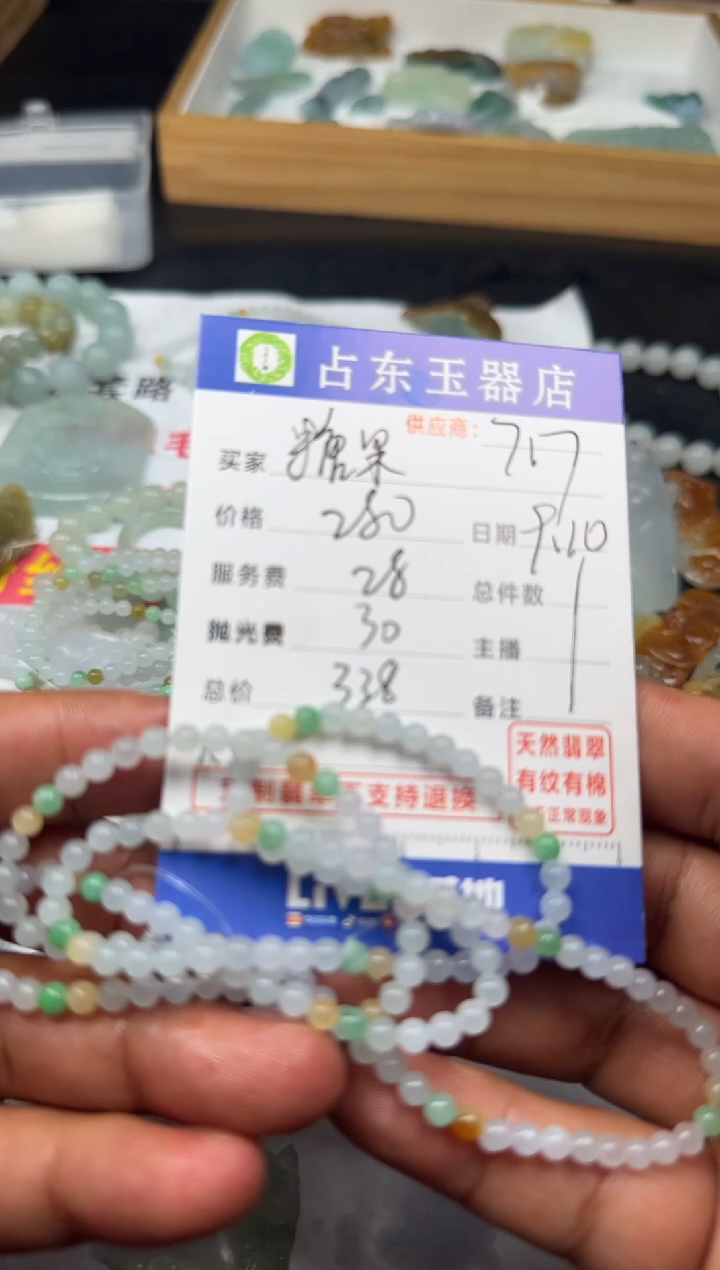 占东玉器店
供应商: 717
买家 糖果
价格 280 日期 9.10
服务费 28 总件数 1
抛光费 30 主播
总价 338 备注
天然翡翠
有纹有棉
正常现象
制翡翠不支持退换
LIVE 基地
套路
毛